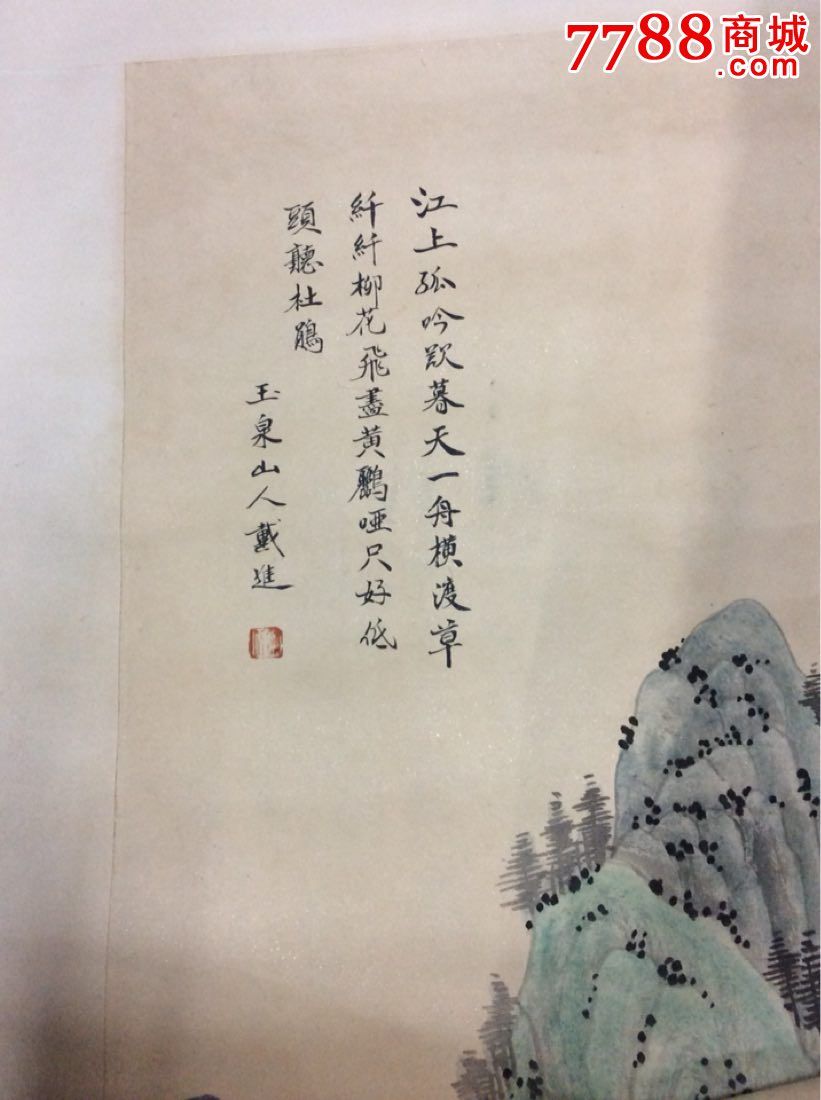 7788商城
.com
江上孤吟欵暮天一舟橫渡草
纤纤柳花飛盡黄鸝哑只好低
頭聽杜鵑
玉泉山人戴進